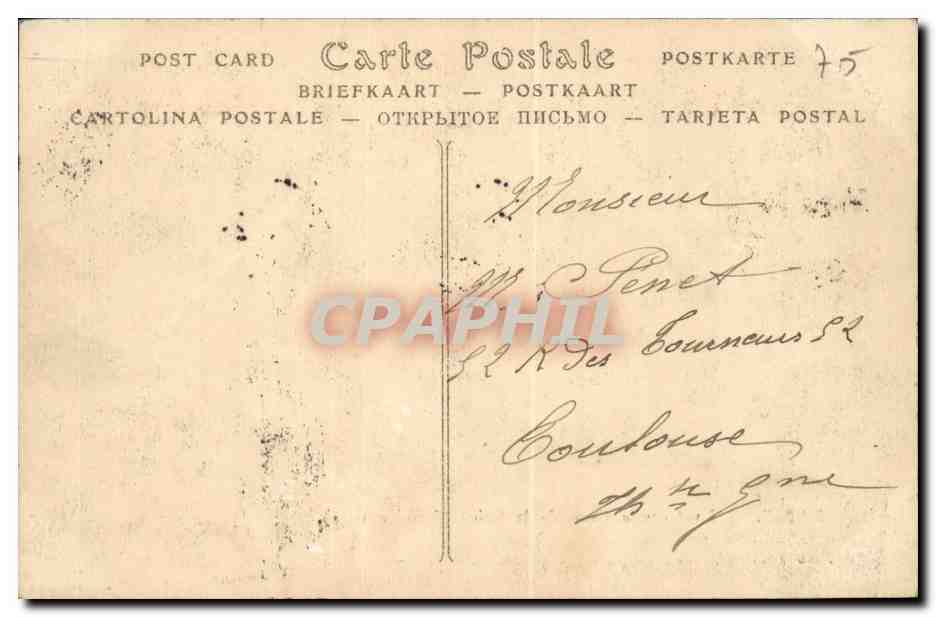 POST CARD Carte Postale POSTKARTE 75
BRIEFKAART — POSTKAART
CARTOLINA POSTALE — ОТКРЫТОЕ ПИСЬМО — TARJETA POSTAL
Monsieur
M. Penet
CPAPHIL
52 R des Tourneurs 52
Toulouse
Hte Gne